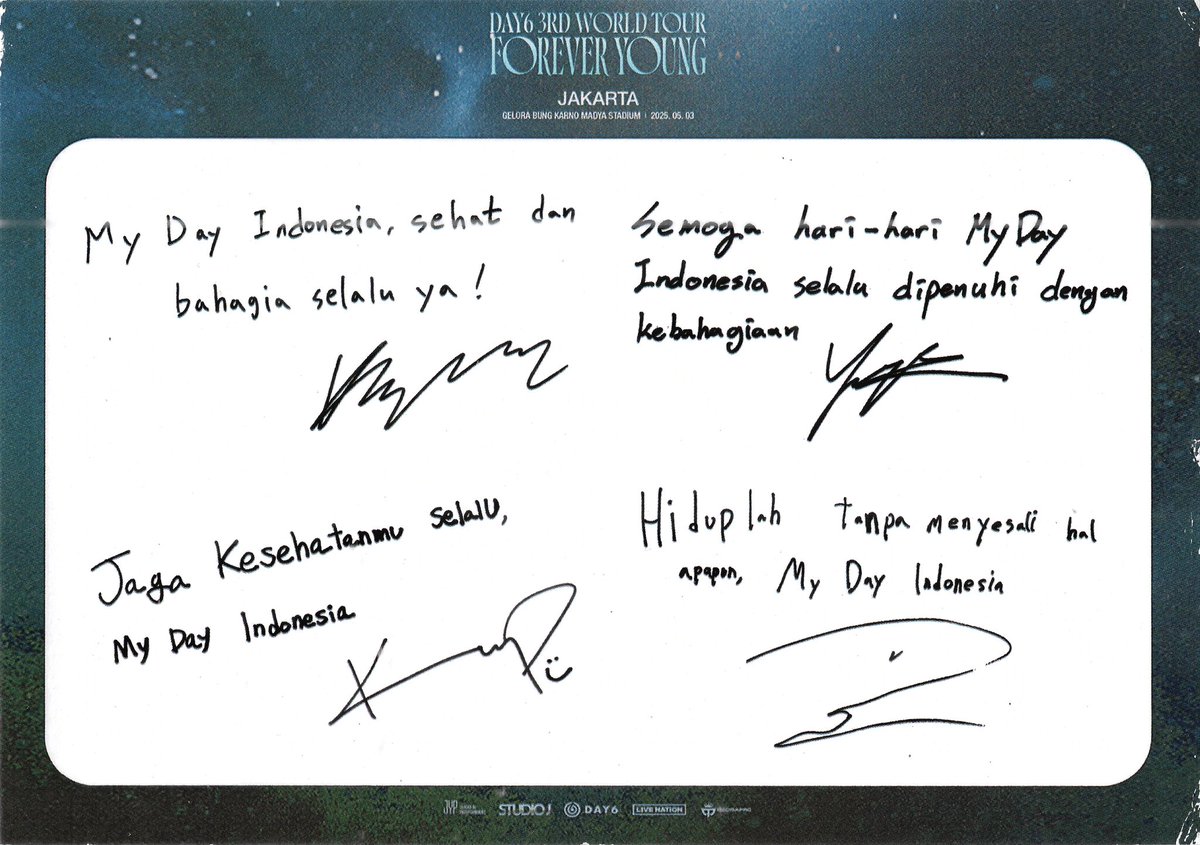 DAY6 3RD WORLD TOUR
FOREVER YOUNG
JAKARTA
GELORA BUNG KARNO MADYA STADIUM | 2025. 05. 03
My Day Indonesia, sehat dan
bahagia selalu ya!
Semoga hari-hari My Day
Indonesia selalu dipenuhi dengan
kebahagiaan
Jaga Kesehatanmu selalu,
My Day Indonesia
Hiduplah tanpa menyesali hal
apapun, My Day Indonesia
JYP STUDIO J DAY6 LIVE NATION